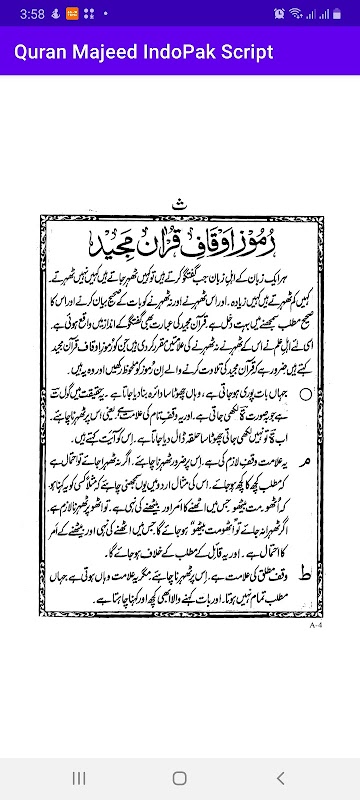 3:58
Quran Majeed IndoPak Script
ث
رُموزِ اَوقافِ قرآن مجید
ہر ایک زبان کے اہلِ زبان جب گفتگو کرتے ہیں تو کہیں ٹھہر جاتے ہیں کہیں نہیں ٹھہرتے۔
کہیں کم ٹھہرتے ہیں کہیں زیادہ۔ اور اس ٹھہرنے اور نہ ٹھہرنے کو بات کے صحیح بیان کرنے اور اس کا
صحیح مطلب سمجھنے میں بہت دخل ہے۔ قرآن مجید کی عبارت بھی گفتگو کے انداز میں واقع ہوئی ہے۔
اسی لئے اہلِ علم نے اس کے ٹھہرنے نہ ٹھہرنے کی علامتیں مقرر کر دی ہیں جن کو رموزِ اوقافِ قرآن مجید
کہتے ہیں ضرور ہے کہ قرآن مجید کی تلاوت کرنے والے اِن رُموز کو ملحوظ رکھیں اور وہ یہ ہیں۔
○ جہاں بات پوری ہو جاتی ہے، وہاں چھوٹا سا دائرہ بنا دیا جاتا ہے۔ یہ حقیقت میں گول ت
ہے جو بصورت ۃ لکھی جاتی ہے۔ اور یہ وقفِ تام کی علامت ہے یعنی اس پر ٹھہرنا چاہئے۔
اب ۃ تو نہیں لکھی جاتی چھوٹا سا حلقہ ڈال دیا جاتا ہے۔ اِس کو آیت کہتے ہیں۔
مـ یہ علامت وقفِ لازم کی ہے۔ اِس پر ضرور ٹھہرنا چاہئے۔ اگر نہ ٹھہرا جائے تو احتمال ہے
کہ مطلب کچھ کا کچھ ہو جائے۔ اس کی مثال اردو میں یوں سمجھنی چاہئے کہ مثلاً کسی کو یہ کہنا ہو
کہ اٹھو۔ مت بیٹھو جس میں اٹھنے کا امر اور بیٹھنے کی نہی ہے۔ تو اٹھو پر ٹھہرنا لازم ہے
اگر ٹھہرا نہ جائے تو اٹھو مت بیٹھو ہو جائے گا جس میں اٹھنے کی نہی اور بیٹھنے کے امر
کا احتمال ہے۔ اور یہ قائل کے مطلب کے خلاف ہو جائے گا۔
ط وقفِ مطلق کی علامت ہے۔ اِس پر ٹھہرنا چاہئے مگر یہ علامت وہاں ہوتی ہے جہاں
مطلب تمام نہیں ہوتا۔ اور بات کہنے والا ابھی کچھ اور کہنا چاہتا ہے۔
A-4